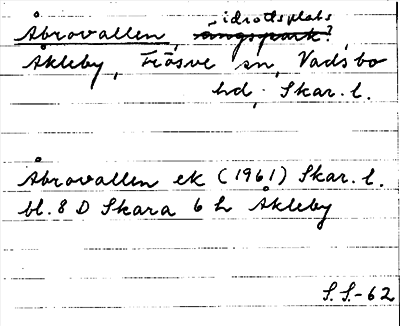 idrottsplats
Åbrovallen, ängspark?
Åkleby, Frösve sn, Vadsbo
hd, Skar. l.
Åbrovallen ek (1961) Skar. l.
bl. 8 D Skara 6 h Åkleby
S.S.-62